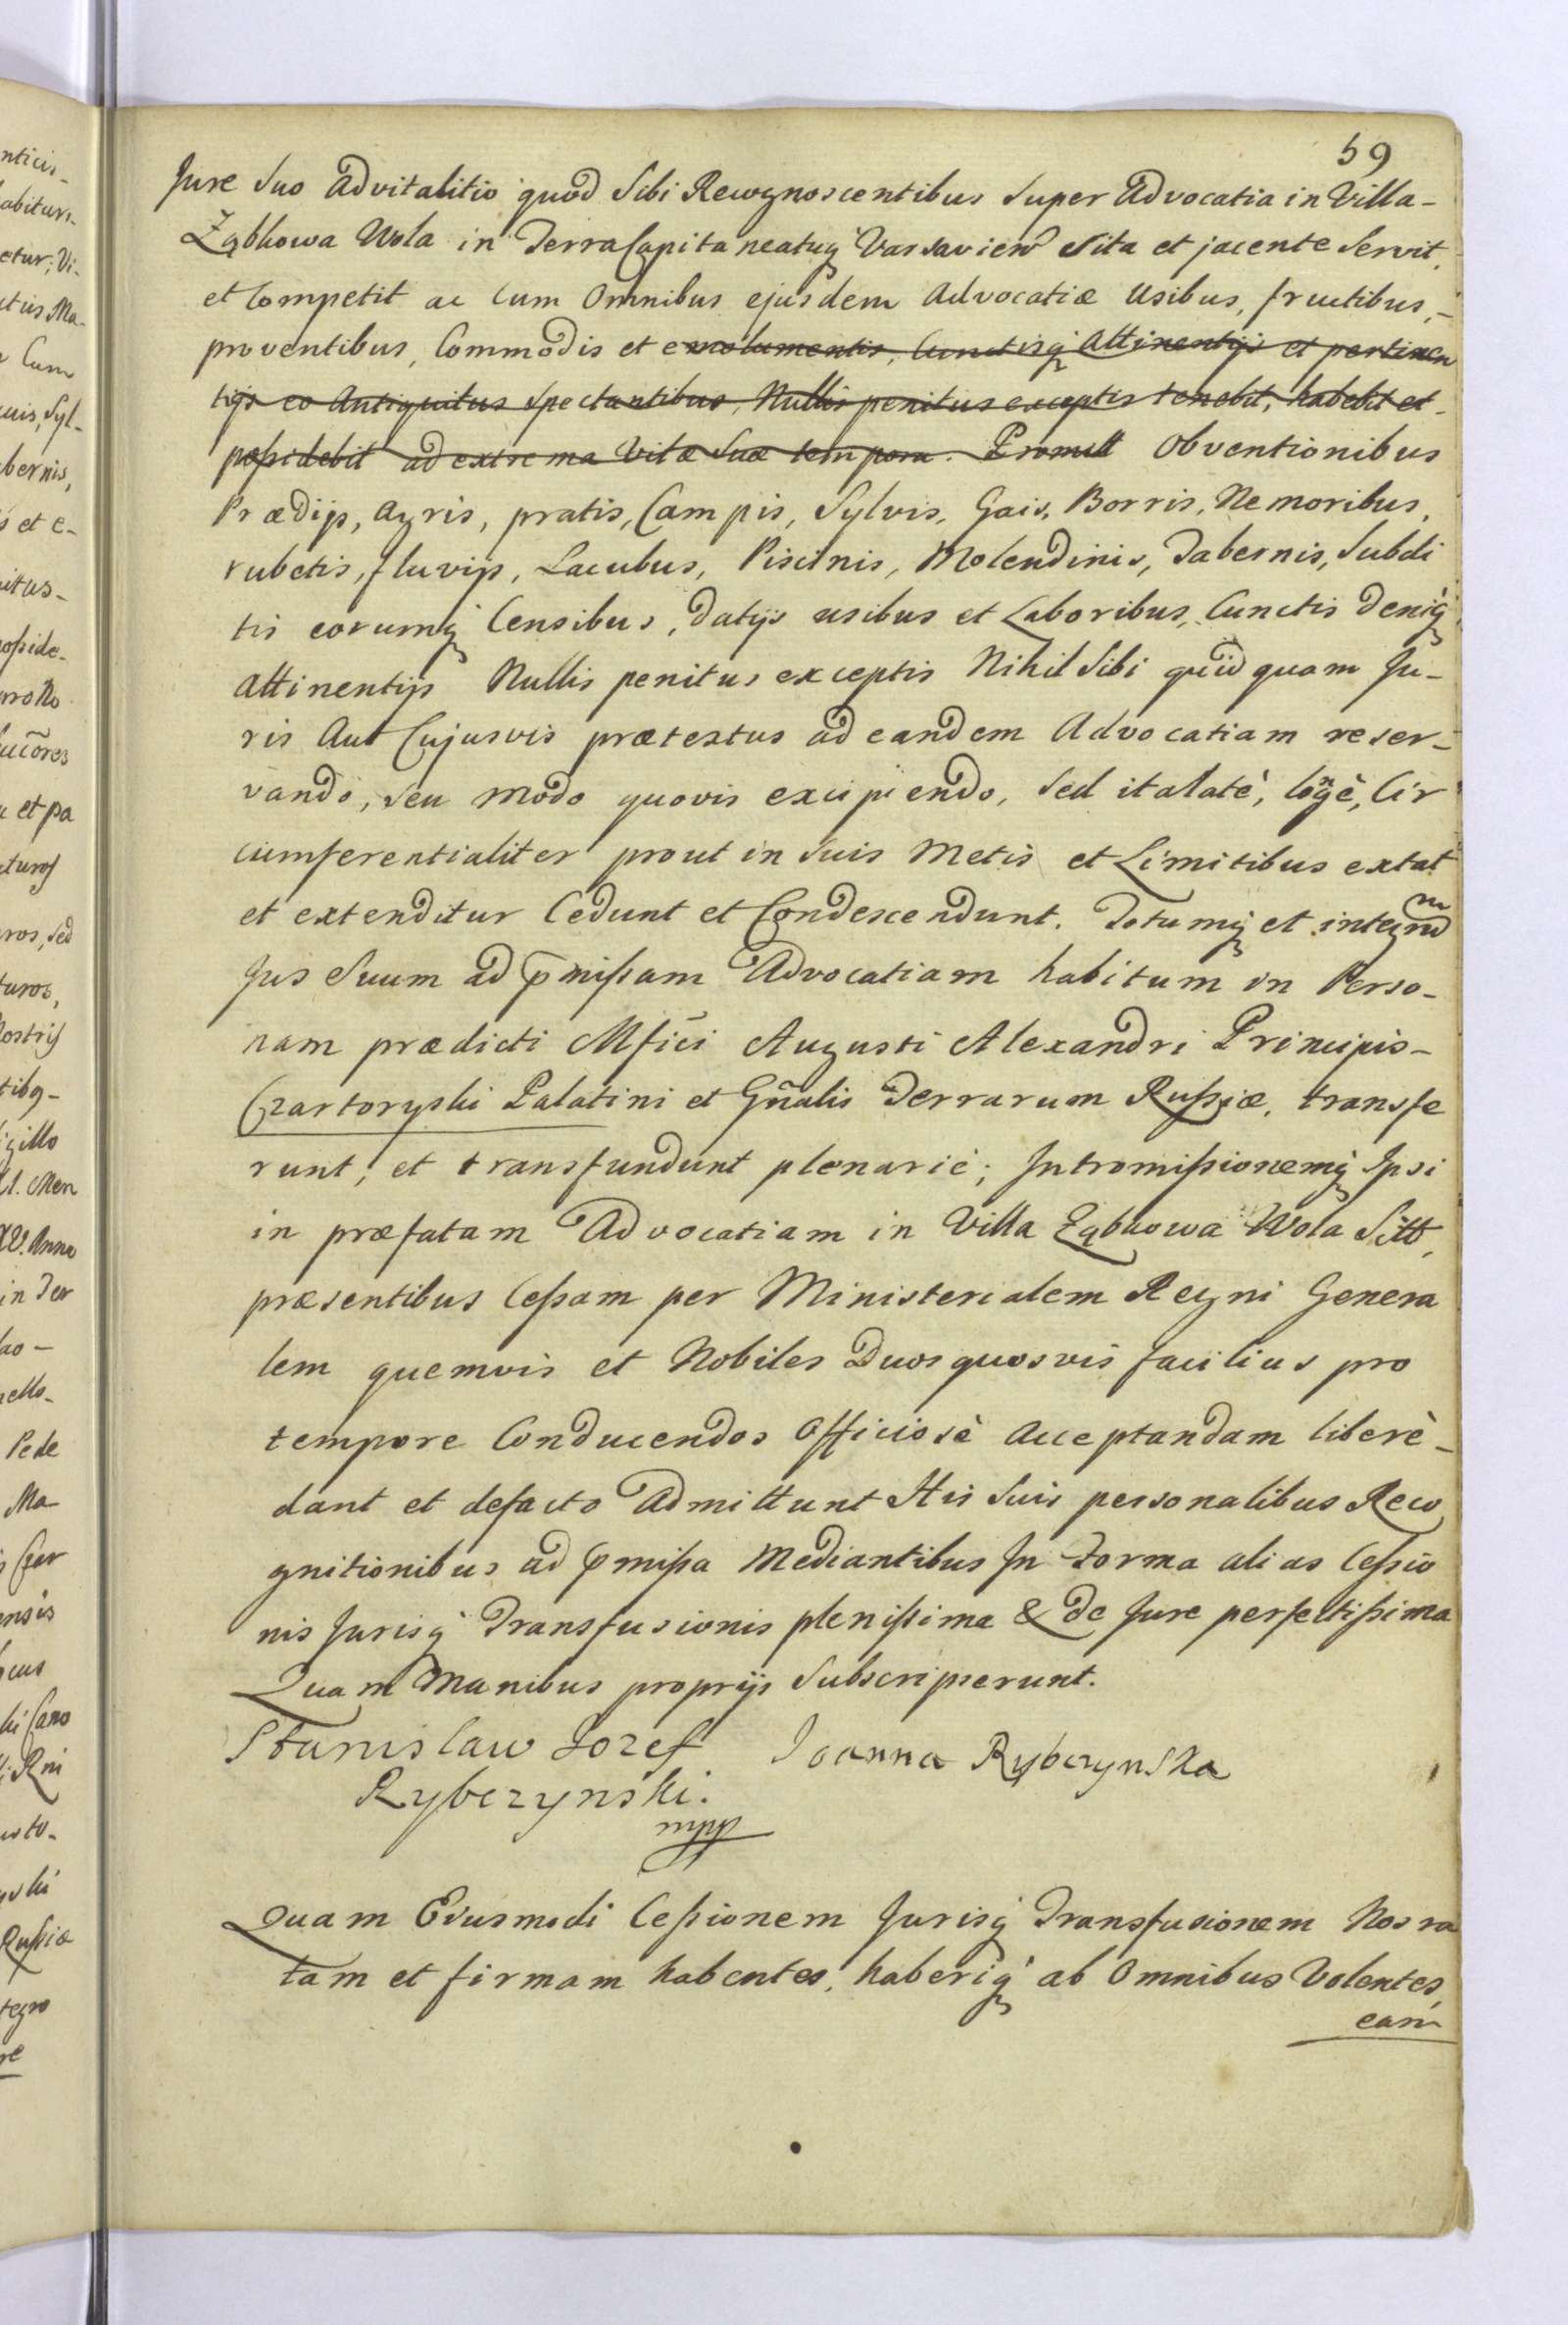 59
Jure Suo advitalitio quod Sibi Recognoscentibus Super Advocatia in Villa-
Ząbkowa Wola in Terra Capitaneatuq Varsavien Sita et jacente Servit,
et Competit ac Cum Omnibus ejusdem Advocatiæ Usibus, fructibus,-
proventibus, Commodis et emolumentis, Cunctisq attinentijs et pertinen
tijs eo Antiquitus Spectantibus, Nullis penitus exceptis tenebit, habebit et
possidebit ad extrema Vitæ Suæ tempora. Promitt Obventionibus
Prædijs, agris, pratis, Campis, Sylvis, Gais, Borris, Nemoribus,
rubetis, fluvijs, Lacubus, Piscinis, Molendinis, Tabernis, Subdi
tis eorumq Censibus, datijs usibus et Laboribus, Cunctis deniq
attinentijs Nullis penitus exceptis Nihil Sibi quidquam Ju-
ris aut Cujusvis prætextus ad eandem Advocatiam reser-
vando, seu modo quovis excipiendo, Sed ita latè, longè, Cir
cumferentialiter prout in Suis Metis et Limitibus extat
et extenditur Cedunt et Condescendunt. Totumq et integrum
Jus Suum ad pmissam Advocatiam habitum in Perso-
nam prædicti Mfici Augusti Alexandri Principis-
Czartoryski Palatini et Gñalis Terrarum Russiæ, transfe
runt, et transfundunt plenariè; Intromissionemq Ipsi
in præfatam Advocatiam in Villa Ząbkowa Wola Sitt,
præsentibus Cessam per Ministerialem Regni Genera
lem quemvis et Nobiles Duos quosvis facilius pro
tempore Conducendos Officiosè acceptandam liberè-
dant et defacto admittunt His Suis personalibus Reco
gnitionibus ad pmissa Mediantibus In Forma alias Cessio
nis Jurisq Transfusionis plenissima & de Jure perfectissima
Quam Manibus proprijs Subscripserunt.
Stanislaw Jozef Joanna Rybczynska
Rybczynski.
mpp
Quam Ejusmodi Cessionem Jurisq Transfusionem Nos ra
tam et firmam habentes, haberiq ab Omnibus Volentes,
eam